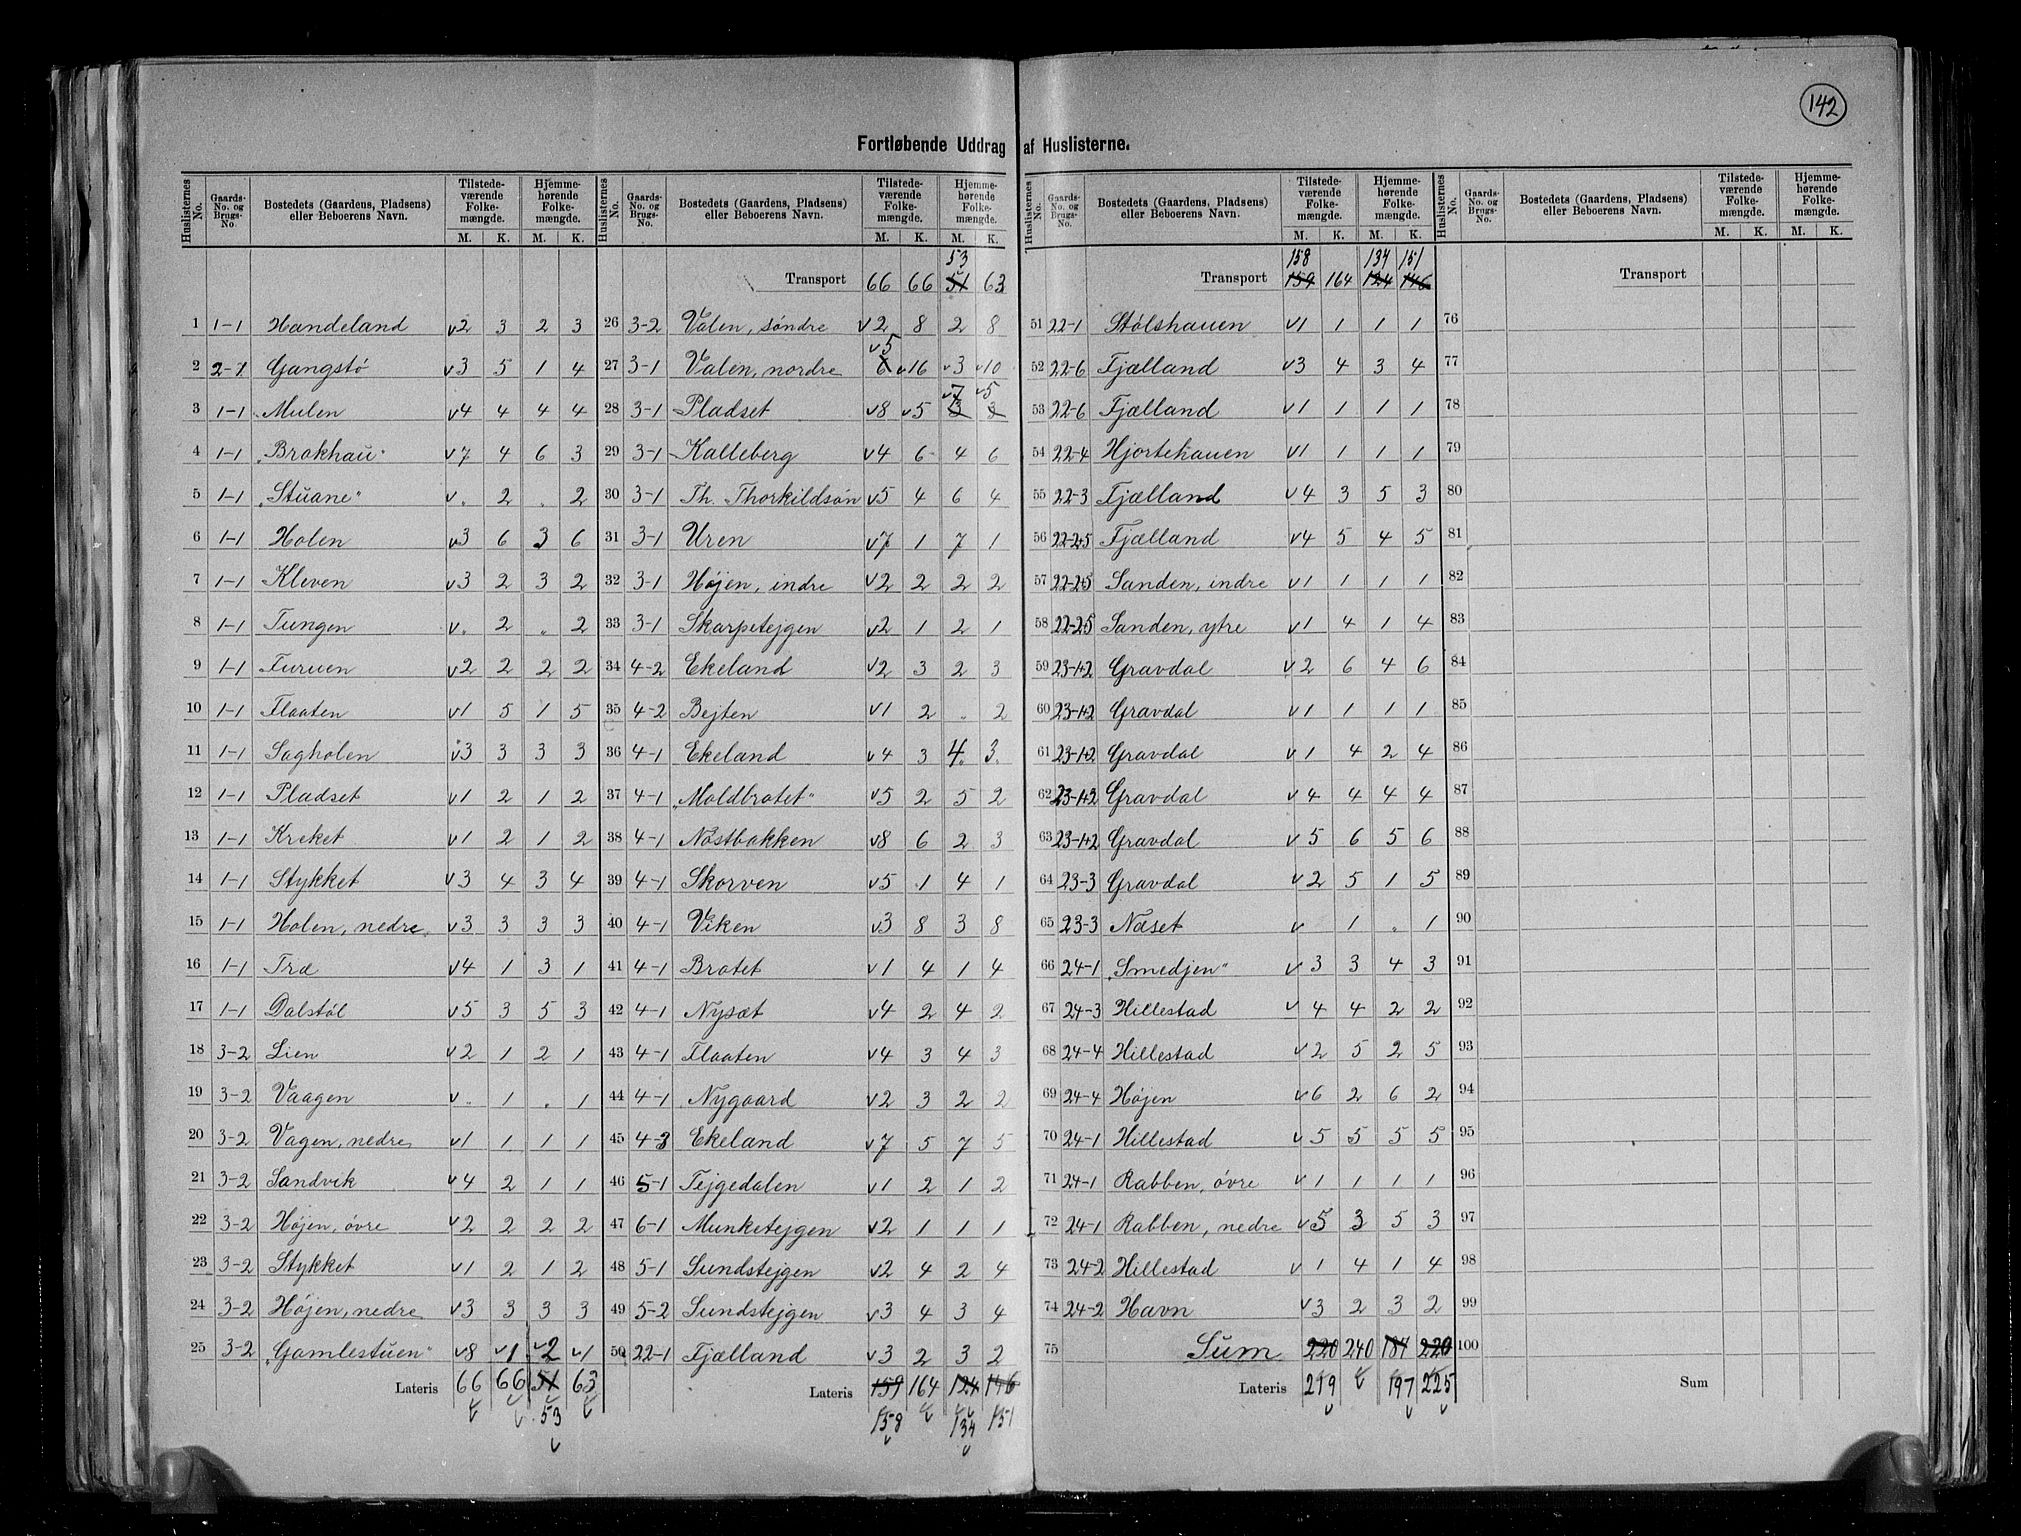 142
Fortløbende Uddrag af Huslisternes
Huslisternes No. | Gaards-No. og Brugs-No. | Bostedets (Gaardens, Pladsens) eller Beboerens Navn. | Tilstedeværende Folkemængde. M. K. | Hjemmehørende Folkemængde. M. K.
1 1-1 Handeland v2 3 2 3
2 2-1 Gangstø v3 5 1 4
3 1-1 Mulen v4 4 4 4
4 1-1 "Brakhau" v7 4 6 3
5 1-1 "Stuane" v. 2 . 2
6 1-1 Holen v3 6 3 6
7 1-1 Kleven v3 2 3 2
8 1-1 Tungen v. 2 „ 2
9 1-1 Furuen v2 2 2 2
10 1-1 Flaaten v1 5 1 5
11 1-1 Sagholen v3 3 3 3
12 1-1 Pladset v1 2 1 2
13 1-1 Kreket v1 2 1 2
14 1-1 Stykket v3 4 3 4
15 1-1 Holen, nedre v3 3 3 3
16 1-1 Træ v4 1 3 1
17 1-1 Dalstøl v5 3 5 3
18 3-2 Lien v2 1 2 1
19 3-2 Vaagen v. 1 . 1
20 3-2 Vagen, nedre v1 1 1 1
21 3-2 Sandvik v4 2 1 1
22 3-2 Højen, øvre v2 2 2 2
23 3-2 Stykket v1 2 1 2
24 3-2 Højen, nedre v3 3 3 3
25 3-2 "Gamlestuen" v8 v1 v2 v1
Lateris 66 66 51 63
53
53
Transport 66 66 51 63
26 3-2 Valen, søndre v2 8 2 8
v5
27 3-1 Valen, nordre 6 v16 v3 v10
v7 v5
28 3-1 Pladset v8 v5 3 3
29 3-1 Kalleberg v4 6 4 6
30 3-1 Th. Thorkildsøn v5 4 6 4
31 3-1 Uren v7 1 7 1
32 3-1 Højen, indre v2 2 2 2
33 3-1 Skarpetejgen v2 1 2 1
34 4-2 Ekeland v2 3 2 3
35 4-2 Bejten v1 2 . 2
36 4-1 Ekeland v4 3 4. 3.
37 4-1 "Moldbrotet" v5 2 5 2
38 4-1 Nøstbakken v8 6 2 3
39 4-1 Skorven v5 1 4 1
40 4-1 Viken v3 8 3 8
41 4-1 Bratet v1 4 1 4
42 4-1 Nysæt v4 2 4 2
43 4-1 Flaaten v4 3 4 3
44 4-1 Nygaard v2 3 2 2
45 4-3 Ekeland v7 5 7 5
46 5-1 Tejgedalen v1 2 1 2
47 6-1 Munketejgen v2 1 1 1
48 5-1 Sundstejgen v2 4 2 4
49 5-2 Sundstejgen v3 4 3 4
50 22-1 Fjælland v3 2 3 2
Lateris 159 164 124 146
158 134 151
158 134 151
Transport 159 164 124 146
51 22-1 Stølshauen v1 1 1 1
52 22-6 Fjælland v3 4 3 4
53 22-6 Fjælland v1 1 1 1
54 22-4 Hjortehauen v1 1 1 1
55 22-3 Fjælland v4 3 5 3
56 22-2+5 Fjælland v4 5 4 5
57 22-2+5 Sanden, indre v1 1 1 1
58 22-2+5 Sanden, ytre v1 4 1 4
59 23-1+2 Gravdal v2 6 4 6
60 23-1+2 Gravdal v1 1 1 1
61 23-1+2 Gravdal v1 4 2 4
62 23-1+2 Gravdal v4 4 4 4
63 23-1+2 Gravdal v5 6 5 6
64 23-3 Gravdal v2 5 1 5
65 23-3 Næset v 1 . 1
66 24-1 "Smedjen" v3 3 4 3
67 24-3 Hillestad v4 4 2 2
68 24-4 Hillestad v2 5 2 5
69 24-4 Højen v6 2 6 2
70 24-1 Hillestad v5 5 5 5
71 24-1 Rabben, øvre v1 1 1 1
72 24-1 Rabben, nedre v5 3 5 3
73 24-2 Hillestad v1 4 1 4
74 24-2 Havn v3 2 3 2
75 Sum 220 240 184 220
Lateris 219 v 197 225
Huslisternes No. | Gaards-No. og Brugs-No. | Bostedets (Gaardens, Pladsens) eller Beboerens Navn. | Tilstedeværende Folkemængde. M. K. | Hjemmehørende Folkemængde. M. K.
Transport
76
77
78
79
80
81
82
83
84
85
86
87
88
89
90
91
92
93
94
95
96
97
98
99
100
Sum